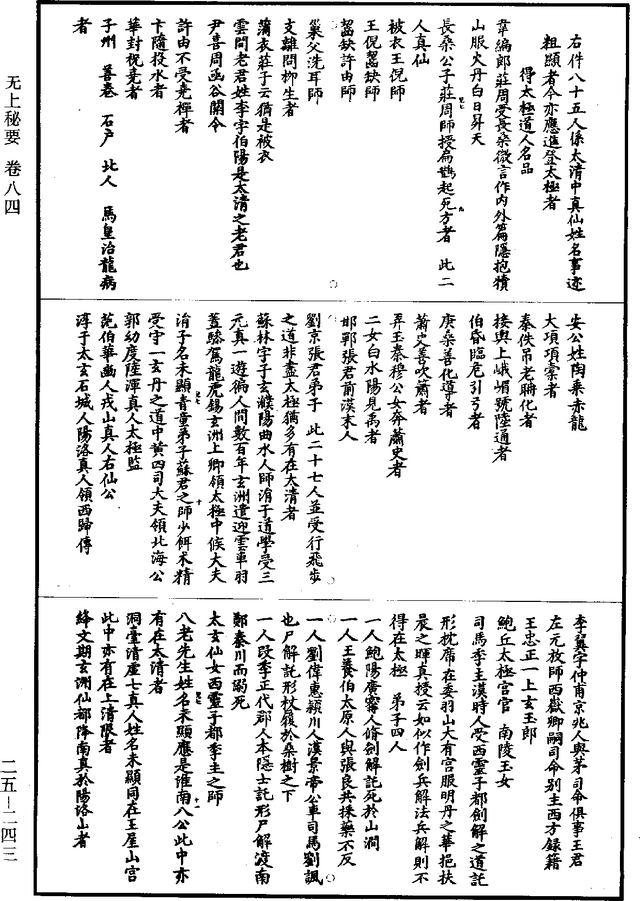 无上秘要 卷八四
二五—二四三
右件八十五人係太清中真仙姓名事迹
粗顯者今亦應進登太極者
得太極道人名品
韋編郎莊周受長桑微言作內外篇隱抱犢
山服火丹白日昇天
長桑公子莊周師授扁鵲起死方者 此二
人真仙
被衣王倪師
王倪齧缺師
齧缺許由師
巢父洗耳師
支離問柳生者
蒲衣莊子云猶是被衣
雲問老君姓李字伯陽是太清之老君也
尹喜周函谷關令
許由不受堯禪者
卞隨投水者
華封祝堯者
子州 善卷 石戶 北人 馬皇治龍病
者
安公姓陶乘赤龍
大項項橐者
秦佚吊老聃化者
接輿上峨嵋號陸通者
伯昏臨危引弓者
庚桑善化導者
蕭史善吹簫者
弄玉秦穆公女奔蕭史者
二女白水陽見禹者
邯鄲張君前漢末人
劉京張君弟子 此二十七人並受行飛步
之道非盡太極猶多有在太清者
蘇林字子玄濮陽曲水人師涓子道學受三
元真一遊徧人間數百年玄洲遣迎雲車羽
蓋驂駕龍虎錫玄洲上卿領太極中候大夫
涓子名未顯青童弟子蘇君之師少餌朮精
受守一玄丹之道中黃四司大夫領北海公
郭幼度陸渾真人太極監
范伯華幽人戎山真人右仙公
淳于太玄石城人陽洛真人領西歸傳
李翼字仲甫京兆人與茅司命俱事王君
左元放師西嶽卿嗣司命別主西方錄籍
王忠正一上玄玉郎
鮑丘太極宮官 南陵玉女
司馬季主漢時人受西靈子都劍解之道託
形枕席在委羽山大有宮服明丹之華挹扶
晨之暉真授云如似作劍兵解法兵解則不
得在太極 弟子四人
一人鮑陽廣寗人脩劍解託死於山澗
一人王養伯太原人與張良共採藥不反
一人劉偉惠潁川人漢景帝公車司馬劉諷
也尸解託形杖履於桑樹之下
一人段季正代郡人本隱士託形尸解渡南
鄭秦川而溺死
太玄仙女西靈子都季主之師
八老先生姓名未顯應是淮南八公此中亦
有在太清者
洞臺清虛七真人姓名未顯同在王屋山宮
此中亦有在上清限者
絳文期玄洲仙都降南真於陽洛山者